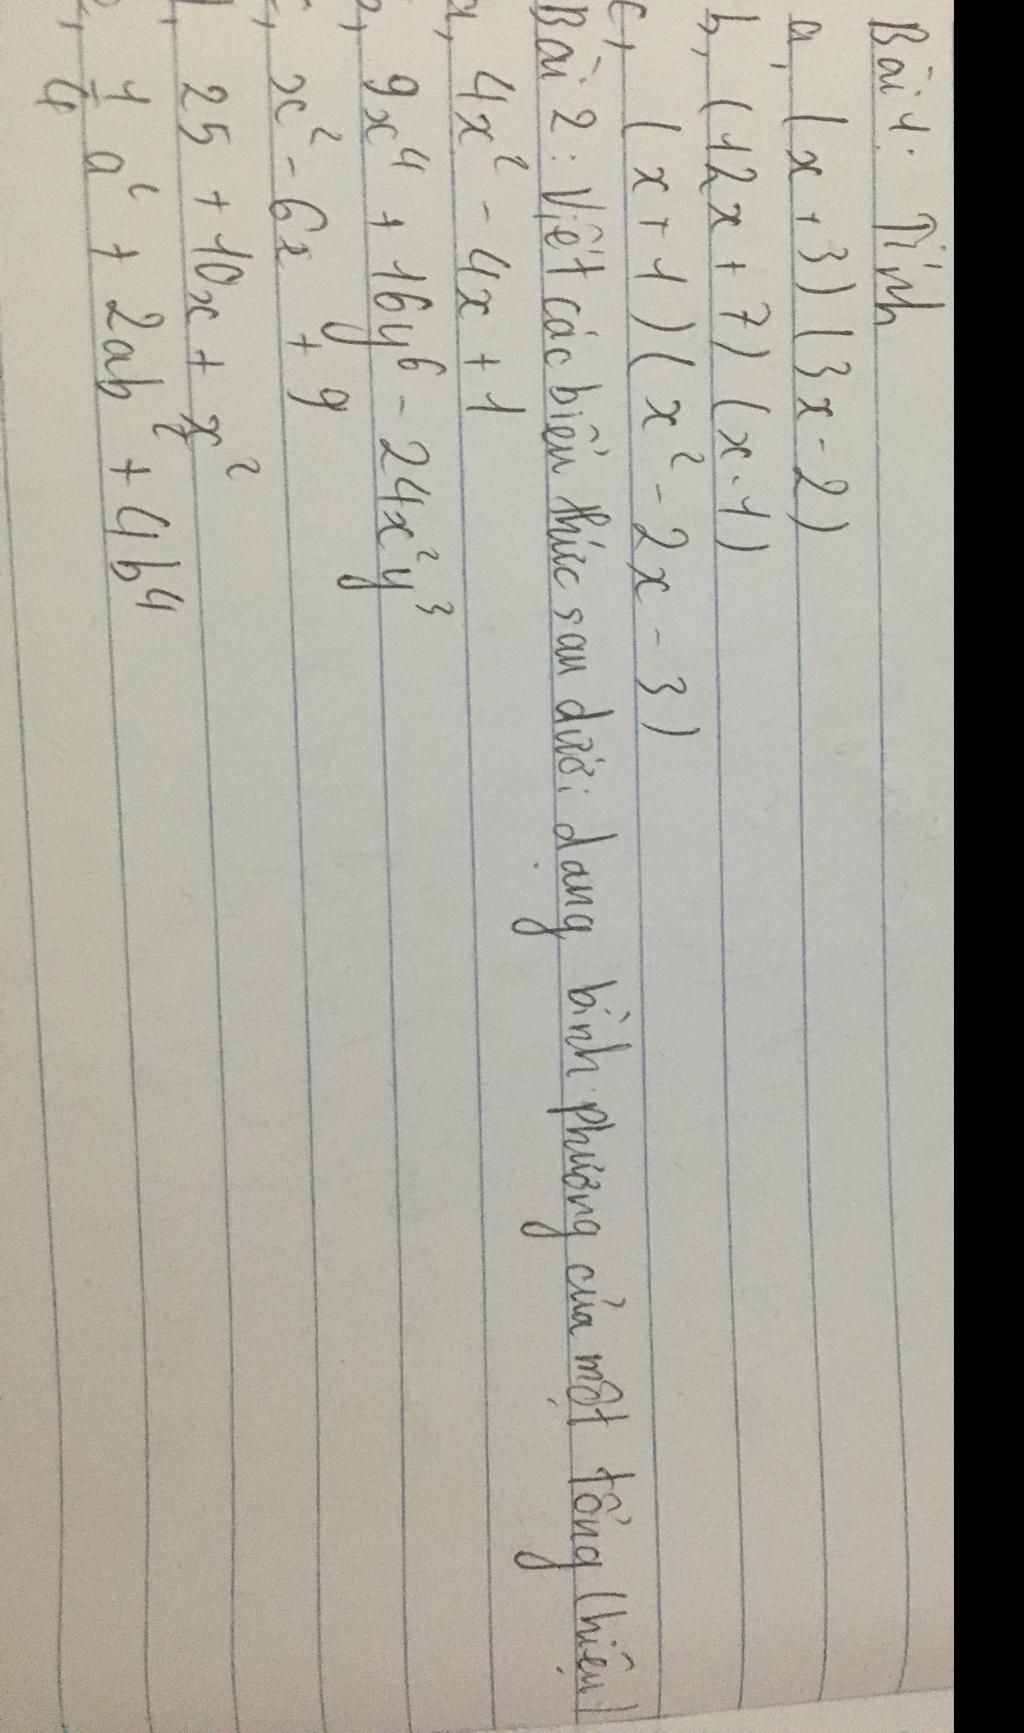 Bài 1: Tính
a, (x + 3) (3x - 2)
b, (12x + 7) (x - 1)
c, (x + 1) (x² - 2x - 3)
Bài 2: Viết các biểu thức sau dưới dạng bình phương của một tổng (hiệu)
a, 4x² - 4x + 1
b, 9x⁴ + 16y⁶ - 24x²y³
c, x² - 6x + 9
25 + 10x + x²
1/4 a² + 2ab² + 4b⁴